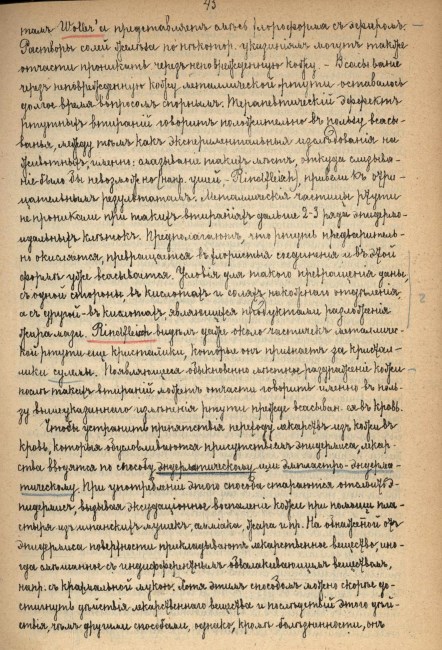 43
тамъ Wolter'а и представляетъ смѣсь хлороформа съ эфиромъ.
Растворы солей желѣза по нѣкотор. указаніямъ могутъ также
отчасти проникать черезъ неповрежденную кожу. – Всасываніе
черезъ неповрежденную кожу металлической ртути оставалось
долгое время вопросомъ спорнымъ. Терапевтическій эффектъ
ртутныхъ втираній говоритъ положительно въ пользу всасы-
ванія, между тѣмъ какъ экспериментальныя изслѣдованія на
животныхъ, именно: смазываніе такихъ мѣстъ, откуда слизыва-
ніе было бы невозможно (напр. ушей – Rindfleisch), привели къ отри-
цательнымъ результатамъ. Металлическія частицы ртути
не проникали при такихъ втираніяхъ дальше 2-3 ряда эпидермо-
идальныхъ клѣтокъ. Предполагаютъ, что ртуть предваритель-
но окисляется, превращается въ хлористыя соединенія и въ этой
формѣ уже всасывается. Условія для такого превращенія даны,
съ одной стороны въ кислотахъ и соляхъ накожнаго отдѣленія,
а съ другой – въ кислотахъ, являющихся продуктами разложенія
жира мази. Rindfleisch видѣлъ даже около частичекъ металличес-
кой ртути еще кристаллики, которые онъ признаетъ за кристал-
лики сулемы. Появляющееся обыкновенно мѣстное раздраженіе кожи
послѣ такихъ втираній можетъ отчасти говорить именно въ поль-
зу вышеуказаннаго измѣненія ртути прежде всасыван. ея въ кровь.
Чтобы устранить препятствія переходу лекарствъ изъ кожи въ
кровь, которыя обусловливаются присутствіемъ эпидермиса, лекар-
ства вводятся по способу эндерматическому или эмпластро-эндерма-
тическому. При употребленіи этого способа стараются отслоить э-
пидермисъ вызывая экссудаціонное воспаленіе кожи при помощи пла-
стыря изъ шпанскихъ мушекъ, амміака, жара и пр. На обнаженой отъ
эпидермиса поверхности прикладываютъ лекарственное вещество, ино-
гда смѣшанное съ индифферентнымъ обволакивающимъ веществомъ,
напр. съ крахмальной мукою. Хотя этимъ способомъ можно скорѣе до-
стигнуть дѣйствія лекарственнаго вещества и послѣдствій этого дѣй-
ствія, чѣмъ другими способами, однако, кромѣ болѣзненности, онъ